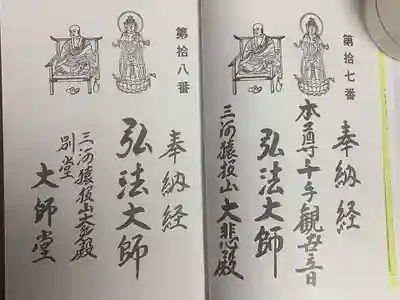 第拾七番
奉納経
本尊千手観世音
弘法大師
三河猿投山 大悲殿
第拾八番
奉納経
弘法大師
三河猿投山大悲殿
別堂
大師堂